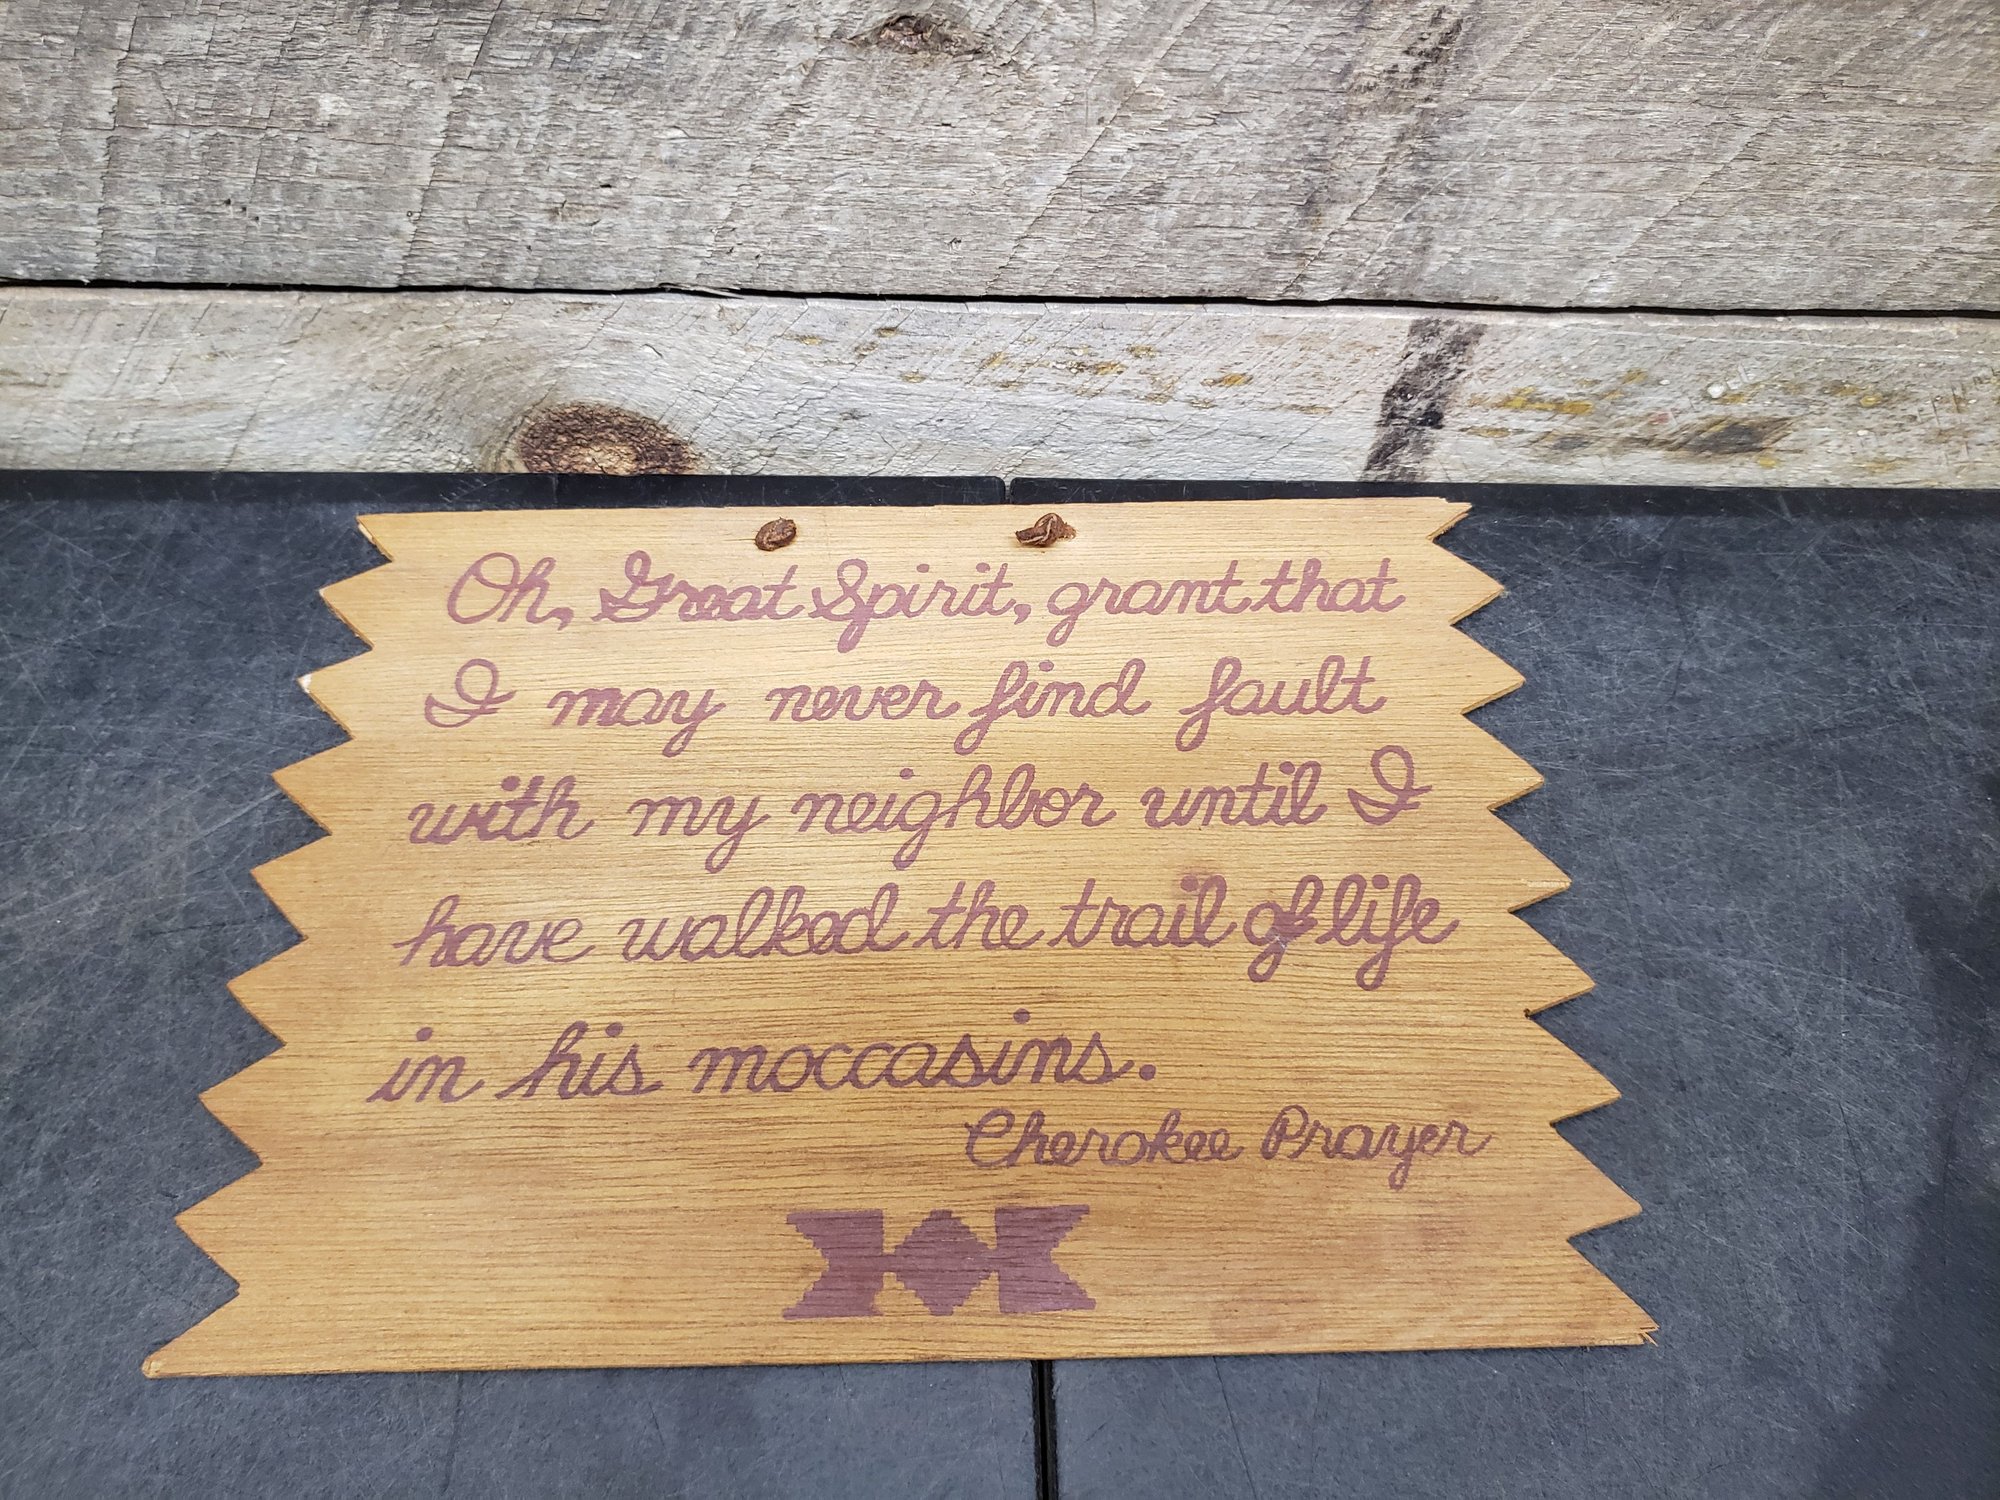 Oh, Great Spirit, grant that
I may never find fault
with my neighbor until I
have walked the trail of life
in his moccasins.
Cherokee Prayer